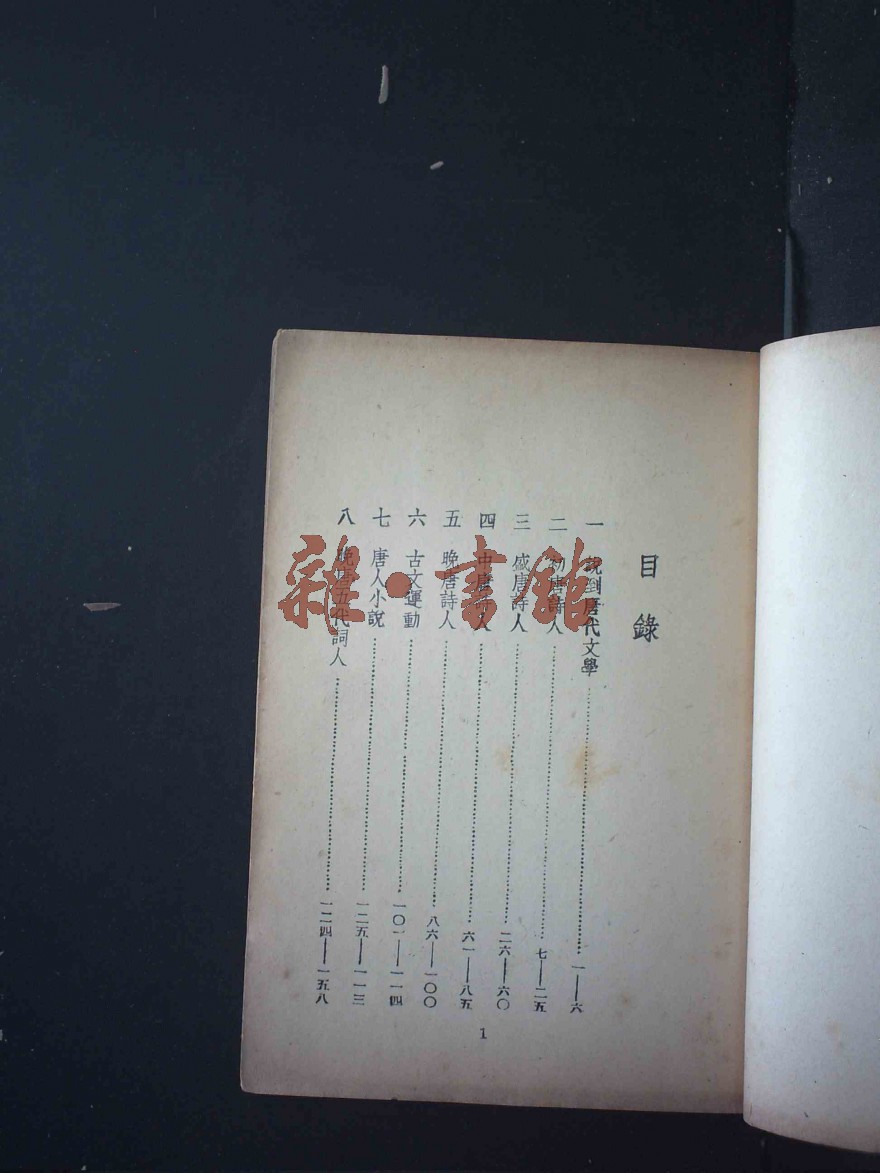 目錄
一 說到唐代文學……一——六
二 初唐詩人……七——二五
三 盛唐詩人……二六——六〇
四 中唐詩人……六一——八五
五 晚唐詩人……八六——一〇〇
六 古文運動……一〇一——一一四
七 唐人小說……一二五——一一三
八 晚唐五代詞人……一二四——一五八
1
雜·書館